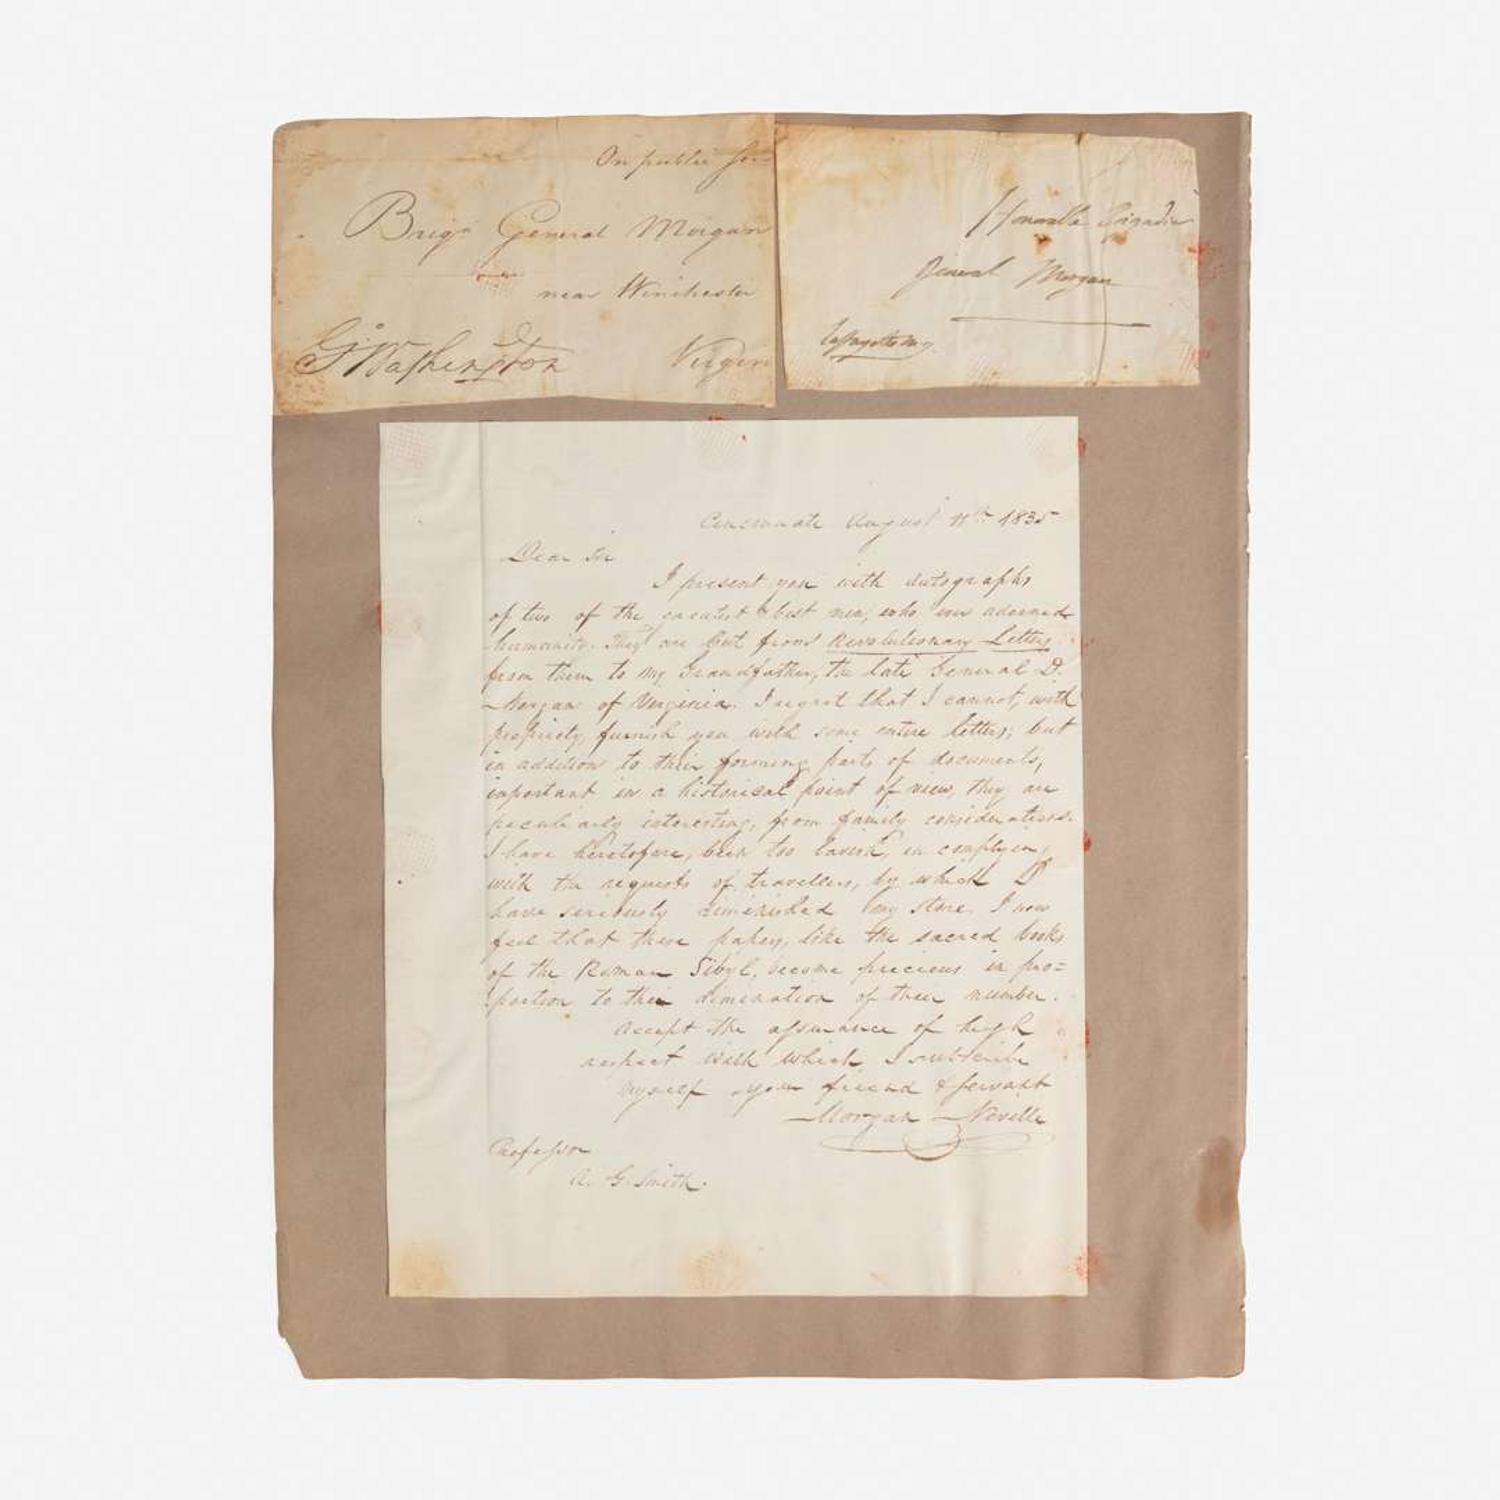 On public
Brigr General Morgan
near Winchester
Go Washington
Virgin
Honorable Brigadier
General Morgan
Lafayette mg
Cincinnati August 11th 1835
Dear Sir
I present you with autographs
of two of the greatest & best men, who ever adorned
humanity. They are cut from Revolutionary Letters
from them to my Grandfather, the late General D.
Morgan of Virginia. I regret that I cannot, with
propriety, furnish you with some entire letters; but
in addition to their forming parts of documents,
important in a historical point of view, they are
peculiarly interesting, from family considerations.
I have heretofore, been too lavish, in complying
with the requests of travellers, by which I
have seriously diminished my store. I now
feel that these papers, like the sacred books
of the Roman Sibyl, become precious in pro=
portion to their diminution of their number.
Accept the assurance of high
respect with which I subscribe
myself your friend & servant
Morgan Neville
Professor
A. G. Smith.